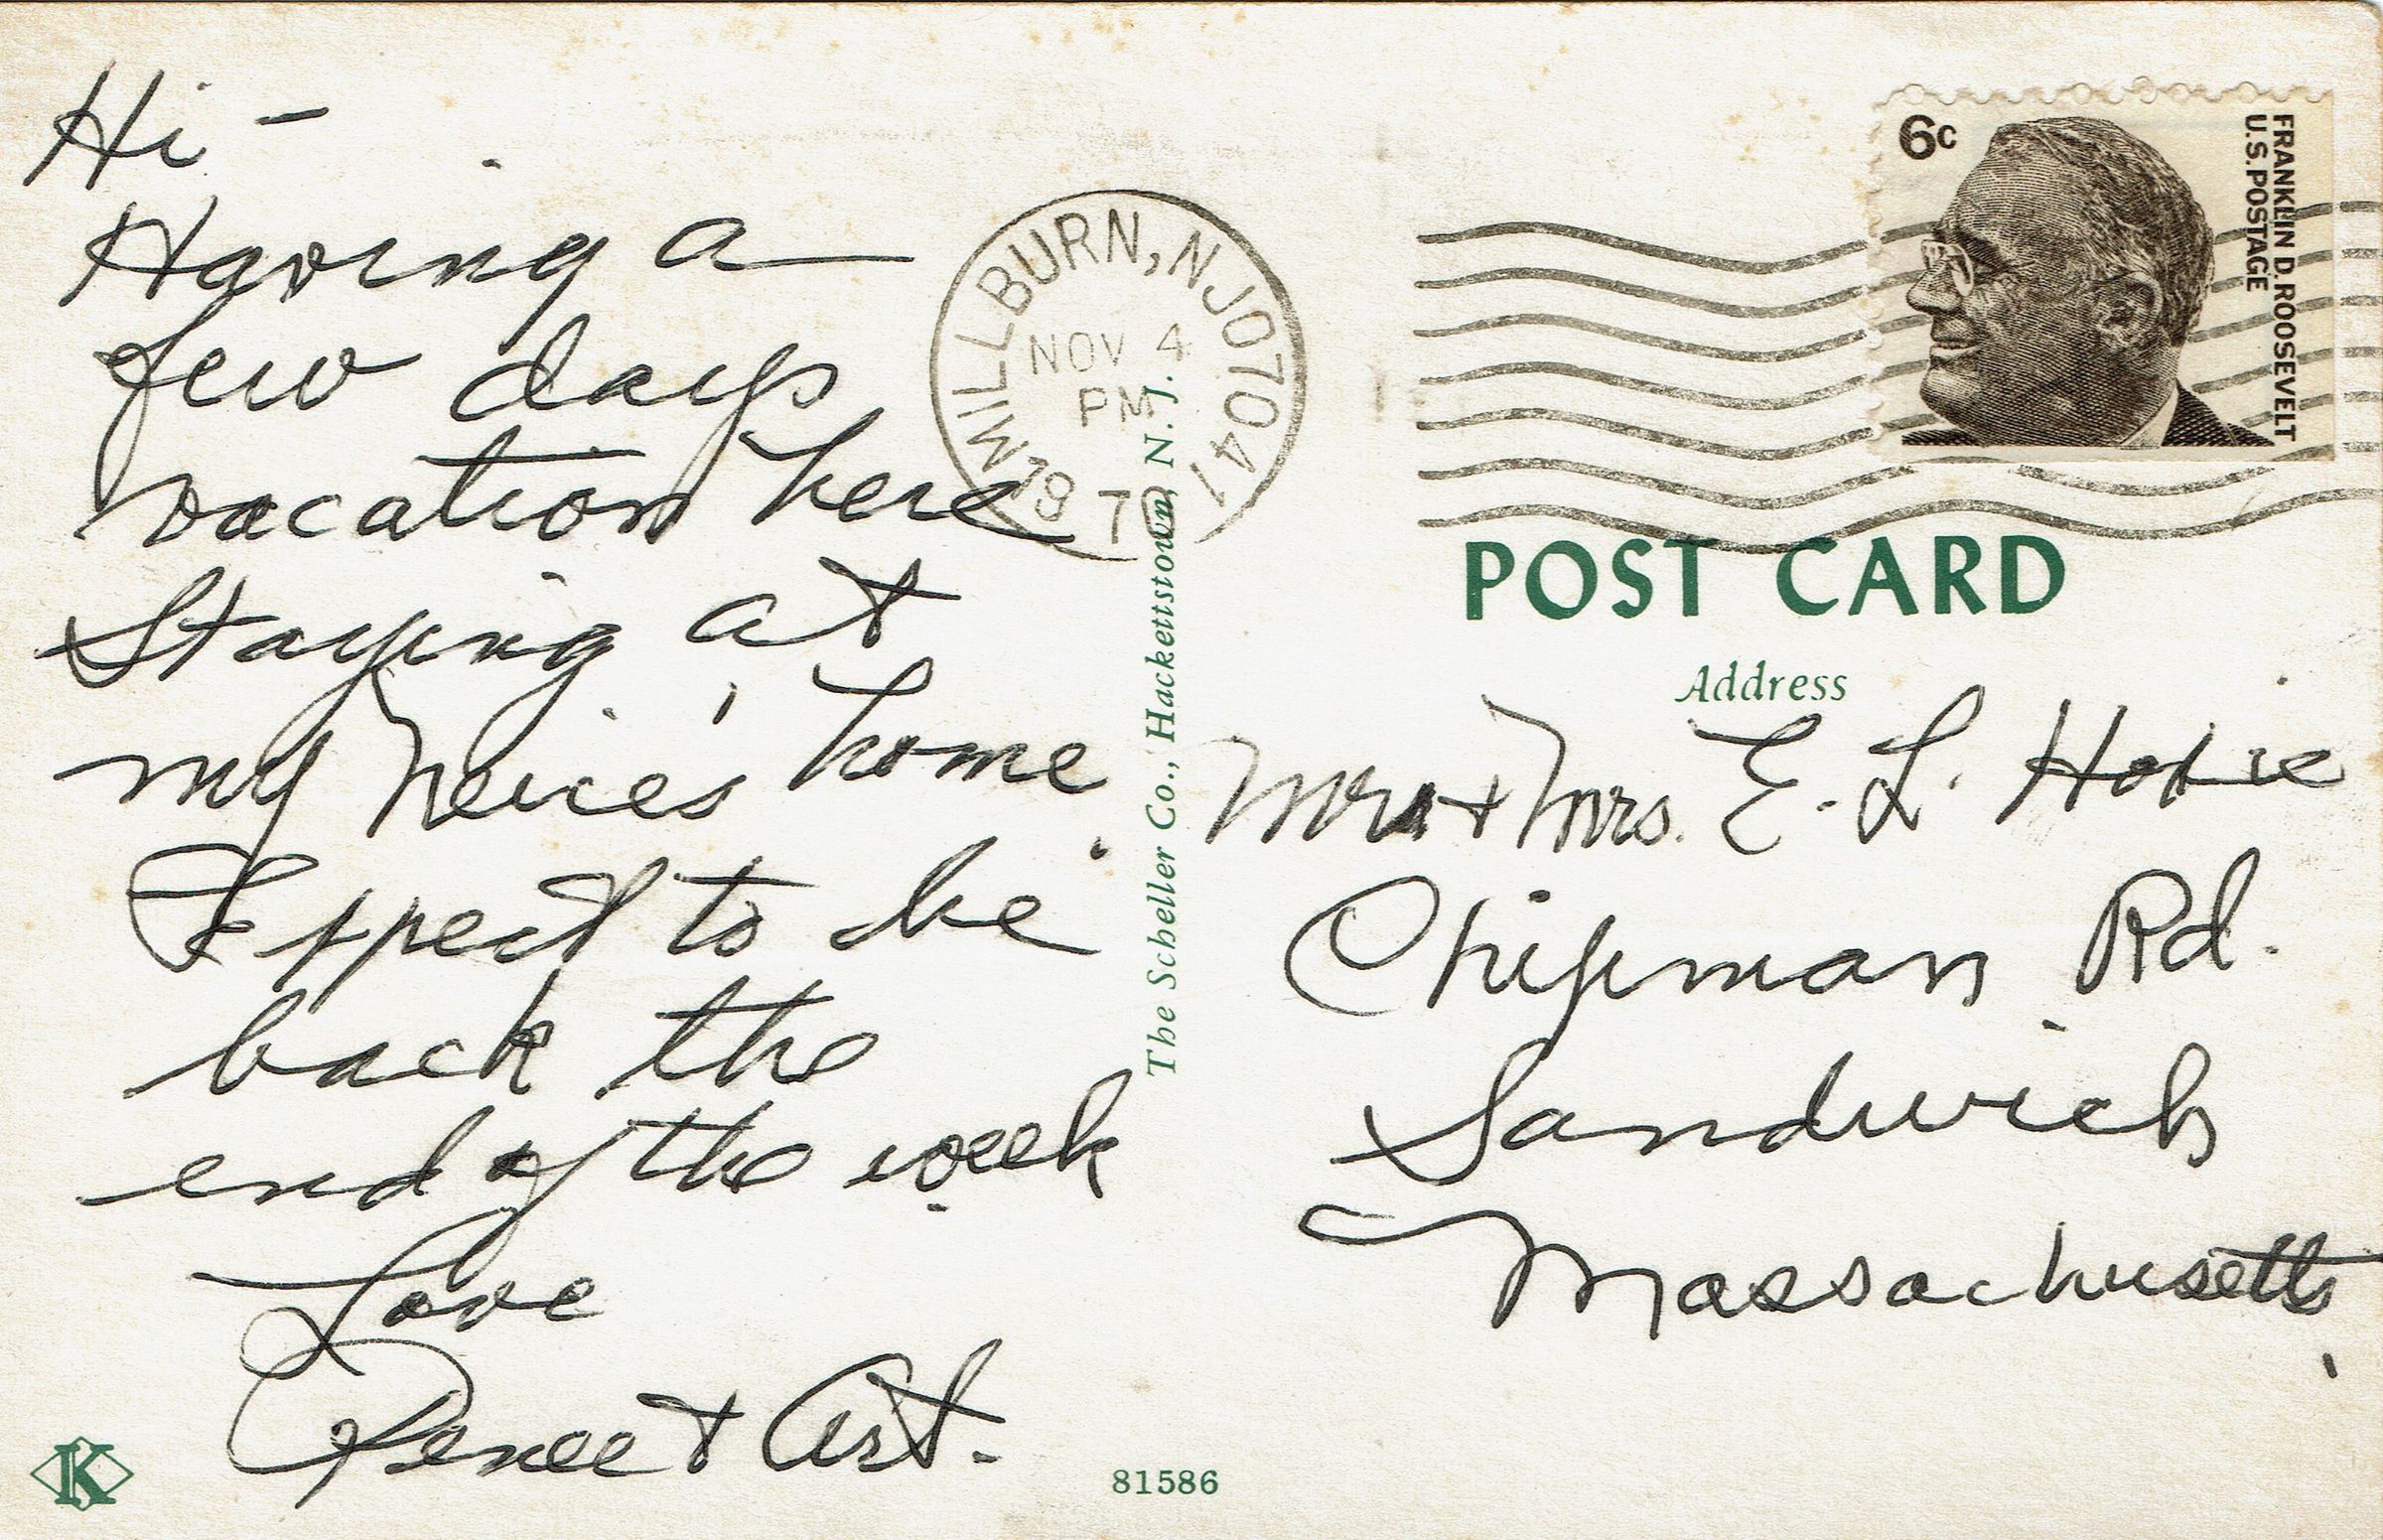 Hi –
Having a
few days
vacation here
Staying at
my neice's home.
Expect to be
back the
end of the week.
Love
Renee + Art.
MILLBURN, NJ 07041
NOV 4
PM
1970
6c
FRANKLIN D. ROOSEVELT
U.S. POSTAGE
POST CARD
Address
Mr + Mrs. E. L.
Chipman Rd.
Sandwich
Massachusetts
The Scheller Co., Hackettstown, N. J.
K
81586